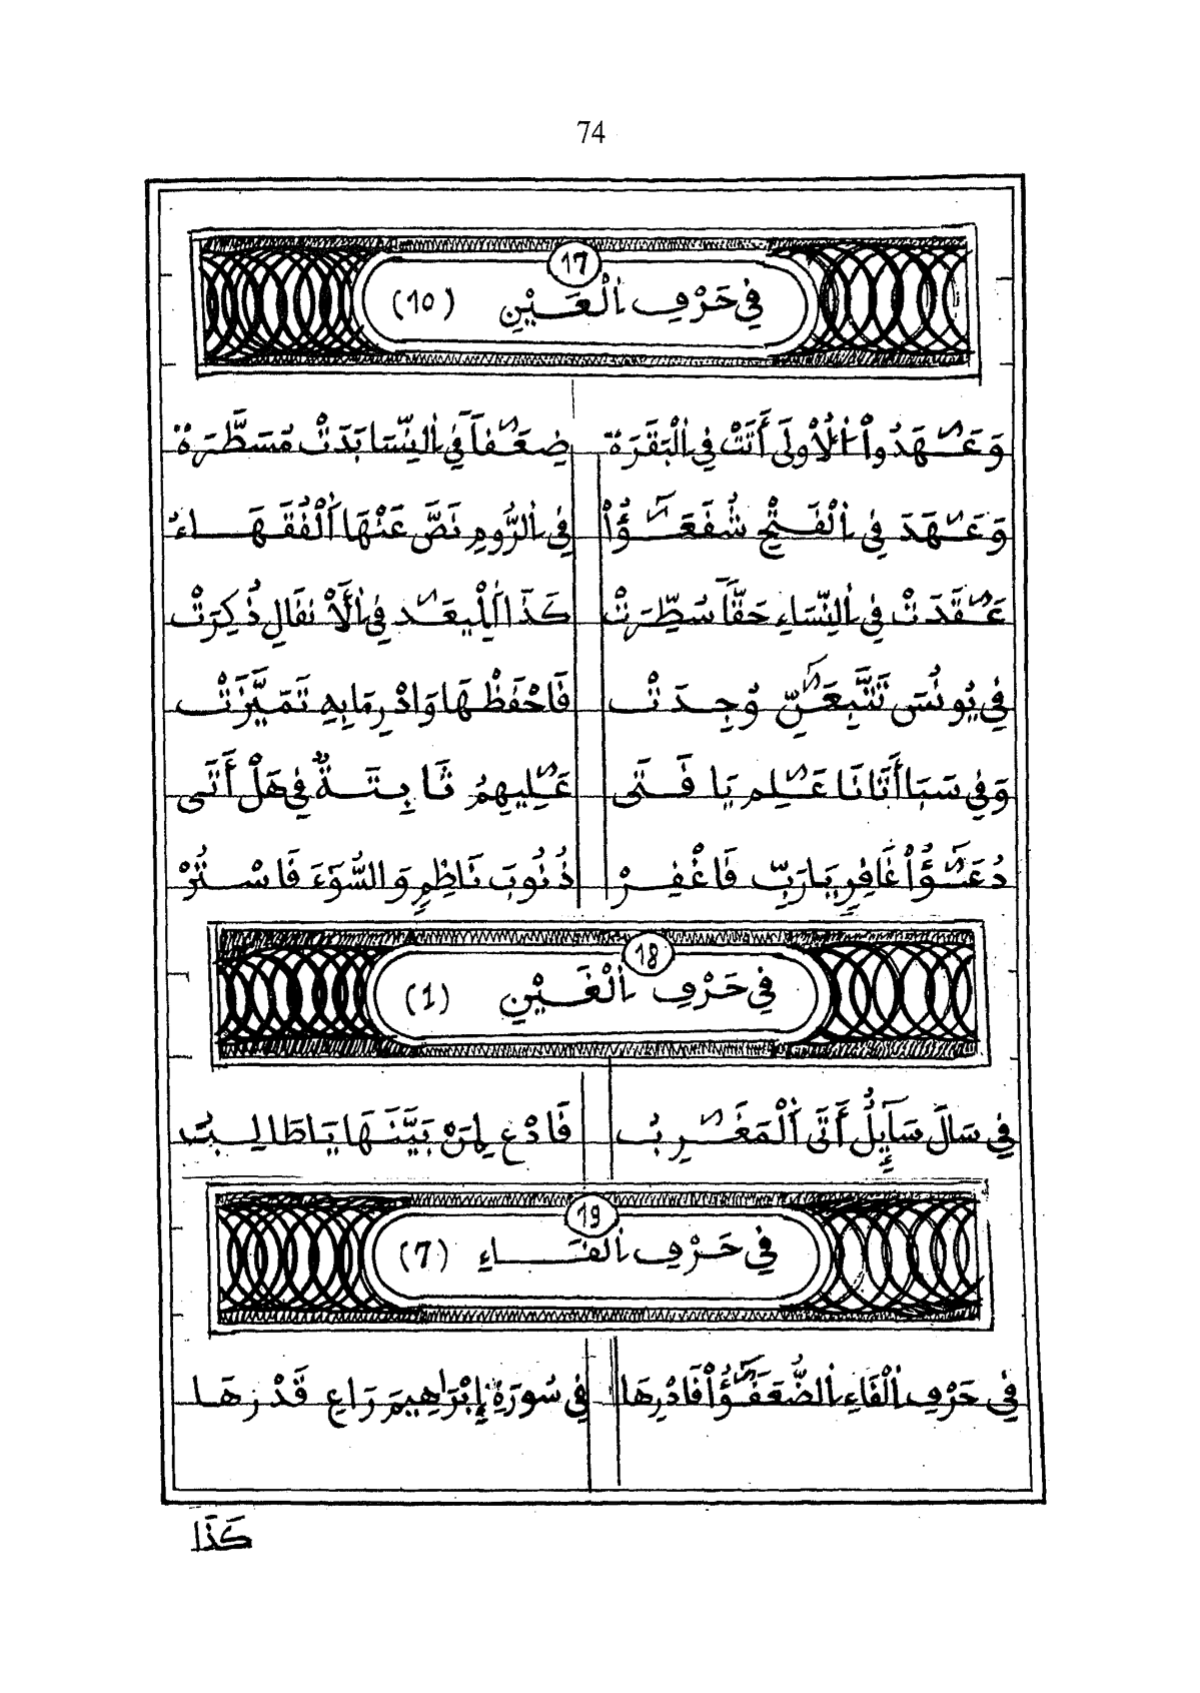 74
17
فِي حَرْفِ اِ۬لْعَيْنِ (10)
وَعَٰهَدُواْ اُ۬لُاولَى أَتَتْ فِي اِ۬لْبَقَرَهْ ضِعَٰفاً فِي اِ۬لنِّسَا بَدَتْ مُسَطَّرَهْ
وَعَٰهَدَ فِي اِ۬لْفَتْحِ شُفَعَٰٓؤُاْ فِي اِ۬لرُّومِ نَصَّ عَنْهَا اَ۬لْفُقَهَاءُ
عَٰقَدَتْ فِي اِ۬لنِّسَاءِ حَقّاً سُطِّرَتْ كَذَا اَ۬لْمِيعَٰدِ فِي اِ۬لَانفَالِ ذُكِرَتْ
فِي يُونُسَ تَتَّبِعَٰٓنِّ وُجِدَتْ فَاحْفَظْهَا وَادْرِ مَا بِهِ تَمَيَّزَتْ
وَفِي سَبَا أَتَانَا عَٰلِمِ يَا فَتَى عَٰلِيهِمُ ثَابِتَةٌ فِي هَلْ أَتَى
دُعَٰٓؤُاْ غَافِرٍ يَارَبِّ فَاغْفِرْ ذُنُوبَ نَاظِمٍ وَالسُّوَءَ فَاسْتُرْ
18
فِي حَرْفِ اِ۬لْغَيْنِ (1)
فِي سَالَ سَآئِلُ أَتَى اَ۬لْمَغَٰرِبُ فَادْعِ لِمَنْ بَيَّنَهَا يَاطَالِبُ
19
فِي حَرْفِ اِ۬لْفَاءِ (7)
فِي حَرْفِ اِ۬لْفَاءِ اِ۬لضُّعَفَٰٓؤُاْ فَادْرِهَا فِي سُورَةِ إِبْرَاهِيمَ رَاعِ قَدْرَهَا
كَذَا